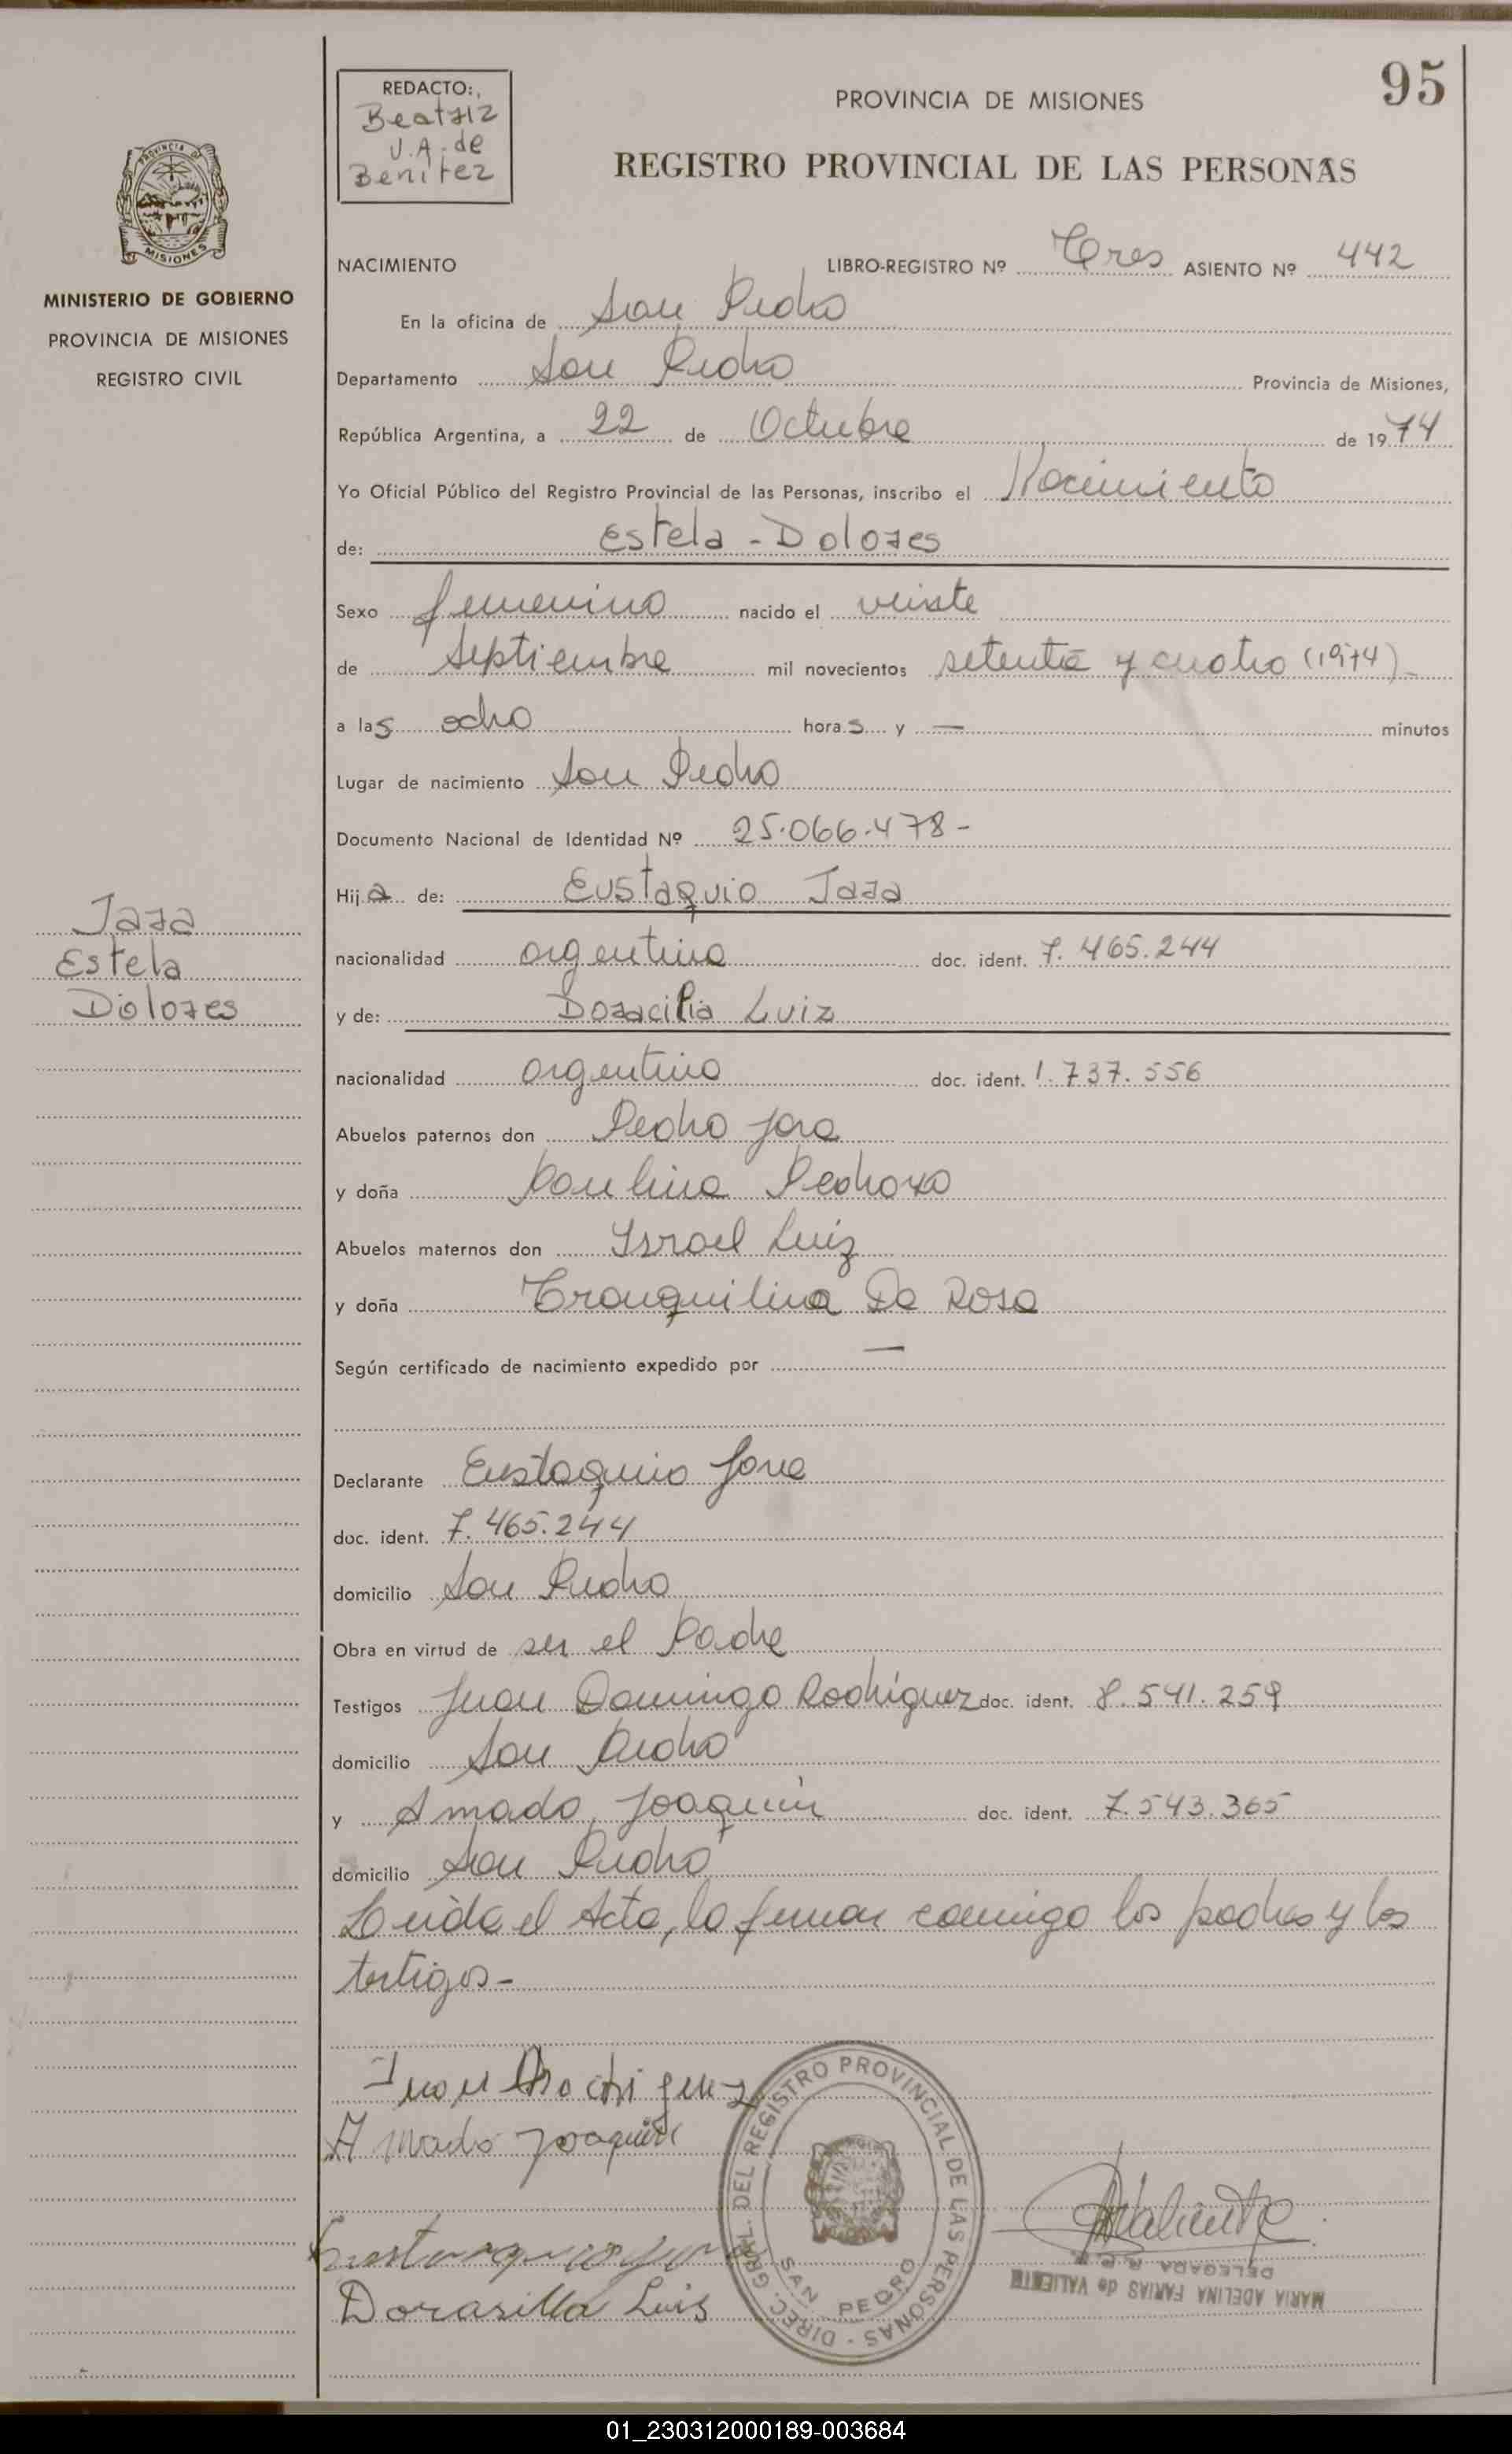 95
REDACTO:
Beatriz
V. A. de
Benitez
PROVINCIA DE MISIONES
REGISTRO PROVINCIAL DE LAS PERSONAS
PROVINCIA DE
MISIONES
MINISTERIO DE GOBIERNO
PROVINCIA DE MISIONES
REGISTRO CIVIL
NACIMIENTO LIBRO-REGISTRO Nº Tres ASIENTO Nº 442
En la oficina de San Pedro
Departamento San Pedro Provincia de Misiones,
República Argentina, a 22 de Octubre de 1974
Yo Oficial Público del Registro Provincial de las Personas, inscribo el Nacimiento
de: Estela - Dolores
Sexo femenino nacido el veinte
de Septiembre mil novecientos setenta y cuatro (1974)-
a las ocho horas y — minutos
Lugar de nacimiento San Pedro
Documento Nacional de Identidad Nº 25.066.478-
Hija de: Eustaquio Jara
nacionalidad argentina doc. ident. 7.465.244
y de: Doracilia Luiz
nacionalidad argentina doc. ident. 1.737.556
Abuelos paternos don Pedro Jara
y doña Paulina Pedrozo
Abuelos maternos don Israel Luiz
y doña Tranquilina Da Rosa
Según certificado de nacimiento expedido por —
Declarante Eustaquio Jara
doc. ident. 7.465.244
domicilio San Pedro
Obra en virtud de ser el Padre
Testigos Juan Domingo Rodríguez doc. ident. 8.541.259
domicilio San Pedro
y Amado Joaquín doc. ident. 7.543.365
domicilio San Pedro
Leída el Acta, la firman conmigo los padres y los
testigos-
Jara
Estela
Dolores
Juan Rodriguez
Amado Joaquin
Dorasilla Luis
DIREC. GRAL. DEL REGISTRO PROVINCIAL DE LAS PERSONAS -
SAN PEDRO
AValiente
MARIA ADELINA FARIAS de VALIENTE
DELEGADA
01_230312000189-003684